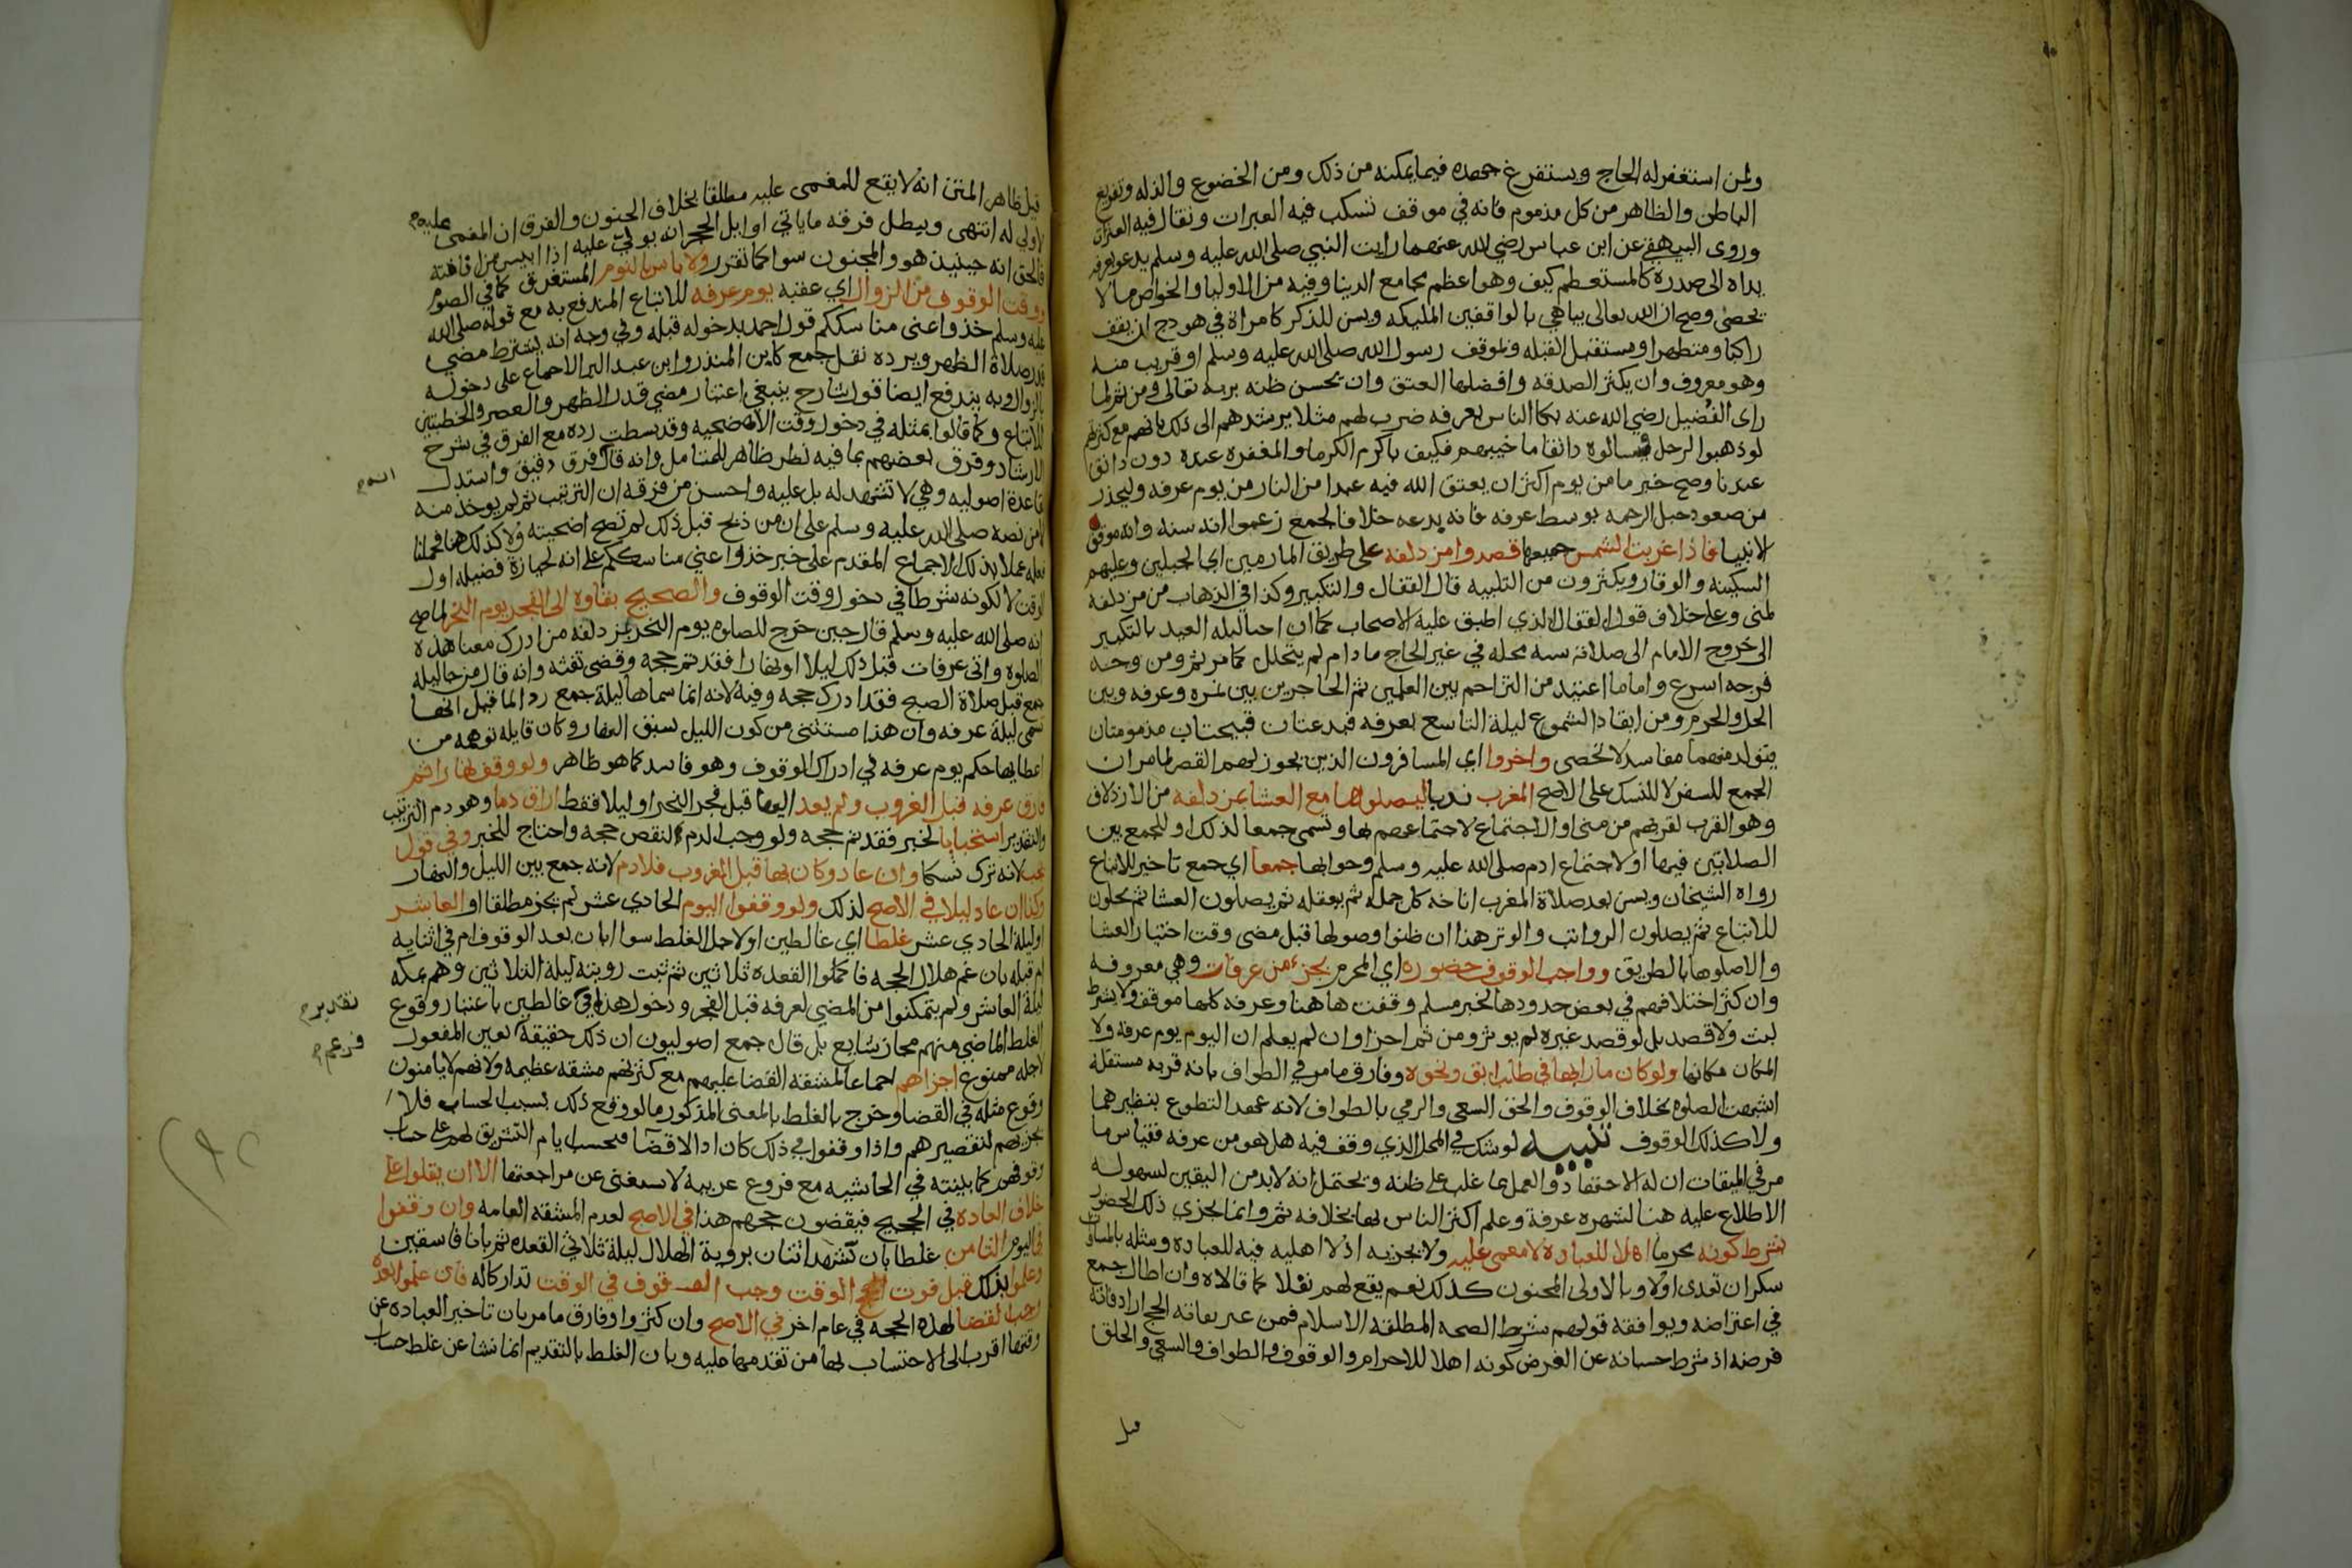 ولمن استغفر له الحاج ويستفرغ جهده فيما يمكنه من ذلك ومن الخضوع والذله وتفريغ
الباطن والظاهر من كل مذموم فانه في موقف تسكب فيه العبرات وتقال فيه العثرات
وروى البيهقي عن ابن عباس رضي الله عنهما رايت النبي صلى الله عليه وسلم يدعو بعرفه
يداه الى صدره كالمستطعم كيف وهو اعظم مجامع الدنيا وفيه من الاوليا والخواص ما لا
يحصى وصح ان الله تعالى يباهي بالواقفين المليكه ويسن للذكر كامراة في هودج ان يقف
راكبا ومتطهرا ومستقبل القبله وبموقف رسول الله صلى الله عليه وسلم او قريب منه
وهو معروف وان يكثر الصدقه وافضلها العتق وان يحسن ظنه بربه تعالى ومن ثم لما
راى الفضيل رضي الله عنه بكا الناس بعرفه ضرب لهم مثلا يرشدهم الى ذلك بانهم مع كثرتهم
لو ذهبوا لرجل فسالوه دانقا ما خيبهم فكيف باكرم الكرما والمغفره عنده دون دانق
عندنا وصح خبر ما من يوم اكثر ان يعتق الله فيه عبدا من النار من يوم عرفه وليحذر
من صعود جبل الرحمه بوسط عرفه فانه بدعه خلافا لجمع زعموا انه سنه وانه موقف
الانبيا فاذا غربت الشمس جميعها قصدوا مزدلفه على طريق المازمين اي الجبلين وعليهم
السكينه والوقار ويكثرون من التلبيه قال القفال والتكبير وكذا في الذهاب من مزدلفه
لمنى وعلى خلاف قول القفال الذي اطبق عليه الاصحاب كما ان احيا ليله العيد بالتكبير
الى خروج الامام الى صلاته سنه محله في غير الحاج ما دام لم يتحلل كما مر ثم ومن وجد
فرجه اسرع واما ما اعتيد من التزاحم بين العلمين ثم الحاجزين بين نمره وعرفه وبين
الحل والحرم ومن ايقاد الشموع ليلة التاسع بعرفه فبدعتان قبيحتان مذمومتان
يتولد منهما مفاسد لا تحصى واخروا اي المسافرون الذين يجوز لهم القصر لما مر ان
الجمع للسفر لا للنسك على الاصح المغرب ندبا ليصلوها مع العشا بمزدلفه من الازدلاف
وهو القرب لقربهم من منى او الاجتماع لاجتماعهم بها وتسمى جمعا لذلك او للجمع بين
الصلاتين فيها او لاجتماع ادم صلى الله عليه وسلم وحوا بها جمعا اي جمع تاخير للاتباع
رواه الشيخان ويسن بعد صلاة المغرب اناخه كل جمله ثم يعقله ثم يصلون العشا ثم يحلون
للاتباع ثم يصلون الرواتب والوتر هذا ان ظنوا وصولها قبل مضى وقت اختيار العشا
والا صلوها بالطريق وواجب الوقوف حضوره اي المحرم بجزء من عرفات وهي معروفه
وان كثر اختلافهم في بعض حدودها لخبر مسلم وقفت هاهنا وعرفه كلها موقف ولا يشترط
لبث ولا قصد بل لو قصد غيره لم يوثر ومن ثم اجزا وان لم يعلم ان اليوم يوم عرفه ولا
المكان مكانها ولو كان مارا بها في طلب ابق ونحوه وفارق ما مر في الطواف بانه قربه مستقله
اشبهت الصلوه بخلاف الوقوف والحق السعي والرمي بالطواف لانه عهد التطوع بنظيرهما
ولا كذلك الوقوف تنبيه لو شك في المحل الذي وقف فيه هل هو من عرفه فقياس ما
مر في الميقات ان له الاجتهاد والعمل بما غلب على ظنه ويحتمل انه لا بد من اليقين لسهوله
الاطلاع عليه هنا لشهره عرفة وعلم اكثر الناس بها بخلافه ثم وانما يجزي ذلك الحضور
بشرط كونه محرما اهلا للعباده لا مغمى عليه ولا يجزيه اذ لا اهليه فيه للعباده ومثله بالمساوي
سكران تعدى او لا وبالاولى المجنون كذلك نعم يقع لهم نفلا كما قالاه وان اطال جمع
في اعتراضه ويوافقه قولهم شرط الصحه المطلقه الاسلام فمن عبر بفاته الحج اراد فاته
فرضه اذ شرط حسبانه عن الفرض كونه اهلا للاحرام والوقوف والطواف والسعي والحلق
قيل ظاهر المتن انه لا يقع للمغمى عليه مطلقا بخلاف الجنون والفرق ان المغمى عليه
لا ولي له انتهى ويبطل فرقه ما ياتي اوايل الحجر انه يولى عليه اذا ايس من افاقته
فالحق انه حينيذ هو والمجنون سوا كما تقرر ولا باس بالنوم المستغرق كما في الصوم
ووقت الوقوف من الزوال اي عقبه يوم عرفه للاتباع المندفع به مع قوله صلى الله
عليه وسلم خذوا عنى مناسككم قول احمد بدخوله قبله وفي وجه انه يشترط مضى
قدر صلاة الظهر ويرده نقل جمع كابن المنذر وابن عبد البر الاجماع على دخوله
بالزوال وبه يندفع ايضا قول شارح ينبغي اعتبار مضى قدر الظهر والعصر والخطبتين
للاتباع وكما قالوا بمثله في دخول وقت الاضحيه وقد بسطت رده مع الفرق في شرح
الارشاد وفرق بعضهم بما فيه نظر ظاهر للمتامل وانه قال فرق دقيق واستدل
بقاعدة اصوليه وهي لا تشهد له بل عليه واحسن من فرقه ان الترتيب ثم لم يوخذ منه
الا من نصه صلى الله عليه وسلم على ان من ذبح قبل ذلك لم تصح اضحيته ولا كذلك هنا فحملنا
فعله عملا بذلك الاجماع المقدم على خبر خذوا عني مناسككم على انه لحيازة فضيله اول
الوقت لا لكونه شرطا في دخول وقت الوقوف والصحيح بقاوه الى الفجر يوم النحر لما صح
انه صلى الله عليه وسلم قال حين خرج للصلوه يوم النحر بمزدلفه من ادرك معنا هذه
الصلوه واتى عرفات قبل ذلك ليلا او نهارا فقد تم حجه وقضى تفثه وانه قال من جا ليله
جمع قبل صلاة الصبح فقد ادرك حجه وفيه لانه انما سماها ليلة جمع رد الما قيل انها
تسمى ليلة عرفه وان هذا مستثنى من كون الليل يسبق النهار وكان قايله توهمه من
اعطايها حكم يوم عرفه في ادراك الوقوف وهو فاسد كما هو ظاهر ولو وقف نهارا ثم
فارق عرفه قبل الغروب ولم يعد اليها قبل فجر النحر او ليلا فقط اراق دما وهو دم الترتيب
والتقدير استحبابا لخبر فقد تم حجه ولو وجب الدم لنقص حجه واحتاج للجبر وفي قول
يجب لانه ترك نسكا وان عاد وكان بها قبل المغروب فلا دم لانه جمع بين الليل والنهار
وكذا ان عاد ليلا في الاصح لذلك ولو وقفوا اليوم الحادي عشر لم يجز مطلقا او العاشر
او ليلة الحادي عشر غلطا اي غالطين او لاجل الغلط سوا ابان بعد الوقوف ام في اثنايه
ام قبله بان غم هلال الحجه فاكملوا القعده ثلاثين ثم ثبت رويته ليلة الثلاثين وهم بمكه
ليلة العاشر ولم يتمكنوا من المضي لعرفه قبل الفجر ودخول هذا في غالطين باعتبار وقوع
تقدير
الغلط الماضي منهم مجاز شايع بل قال جمع اصوليون ان ذلك حقيقة تعين المفعول
فزعم
لاجله ممنوع اجزاهم اجماعا لمشقه القضا عليهم مع كثرتهم مشقه عظيمه ولانهم لا يامنون
وقوع مثله في القضا وخرج بالغلط بالمعنى المذكور ما لو وقع ذلك بسبب الحساب فلا
يجزيهم لتقصيرهم واذا وقفوا في ذلك كان ادا لا قضا فتحسب ايام التشريق لهم على حساب
وقوفهم كما بينته في الحاشيه مع فروع عربيه لا يستغنى عن مراجعتها الا ان يقلوا على
خلاف العاده في الحجيج فيقضون حجهم هذا في الاصح لعدم المشقه العامه وان وقفوا
في اليوم الثامن غلطا بان شهد اثنان بروية الهلال ليلة ثلاثي القعده ثم بانا فاسقين
وعلموا بذلك قبل فوت الوقت وجب الوقوف في الوقت تداركا له فان علموا بعده
وجب القضا لهذه الحجه في عام اخر في الاصح وان كثروا وفارق ما مر بان تاخير العباده عن
وقتها اقرب الى الاحتساب لها من تقدمها عليه وبان الغلط بالتقديم انما نشا عن غلط حساب